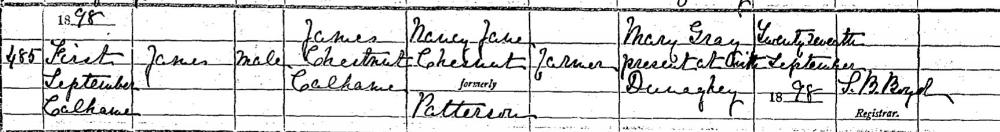 1898
James Nancy Jane Mary Gray Twenty seventh
485 First James male Chestnut Chesnut Farmer present at Birth September
September Calhame formerly Dunaghey 1898 S. B. Boyd
Calhame Patterson Registrar.